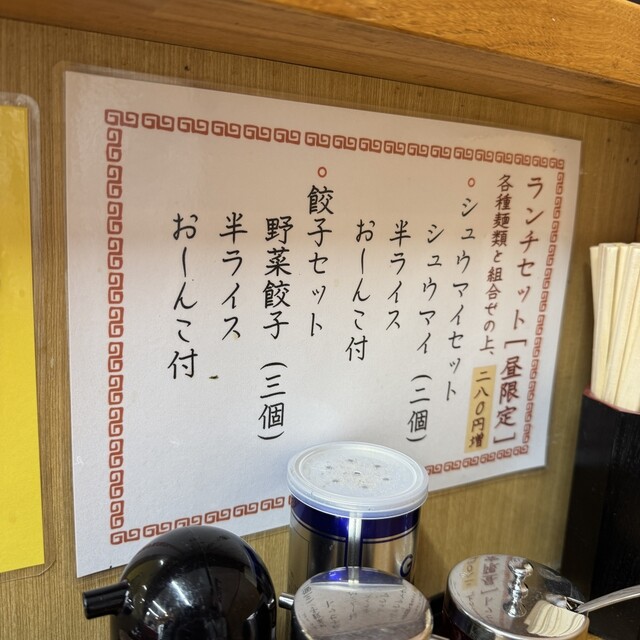 ランチセット［昼限定］
各種麺類と組合せの上、二八〇円増
○シュウマイセット
シュウマイ（二個）
半ライス
おしんこ付
○餃子セット
野菜餃子（三個）
半ライス
おしんこ付